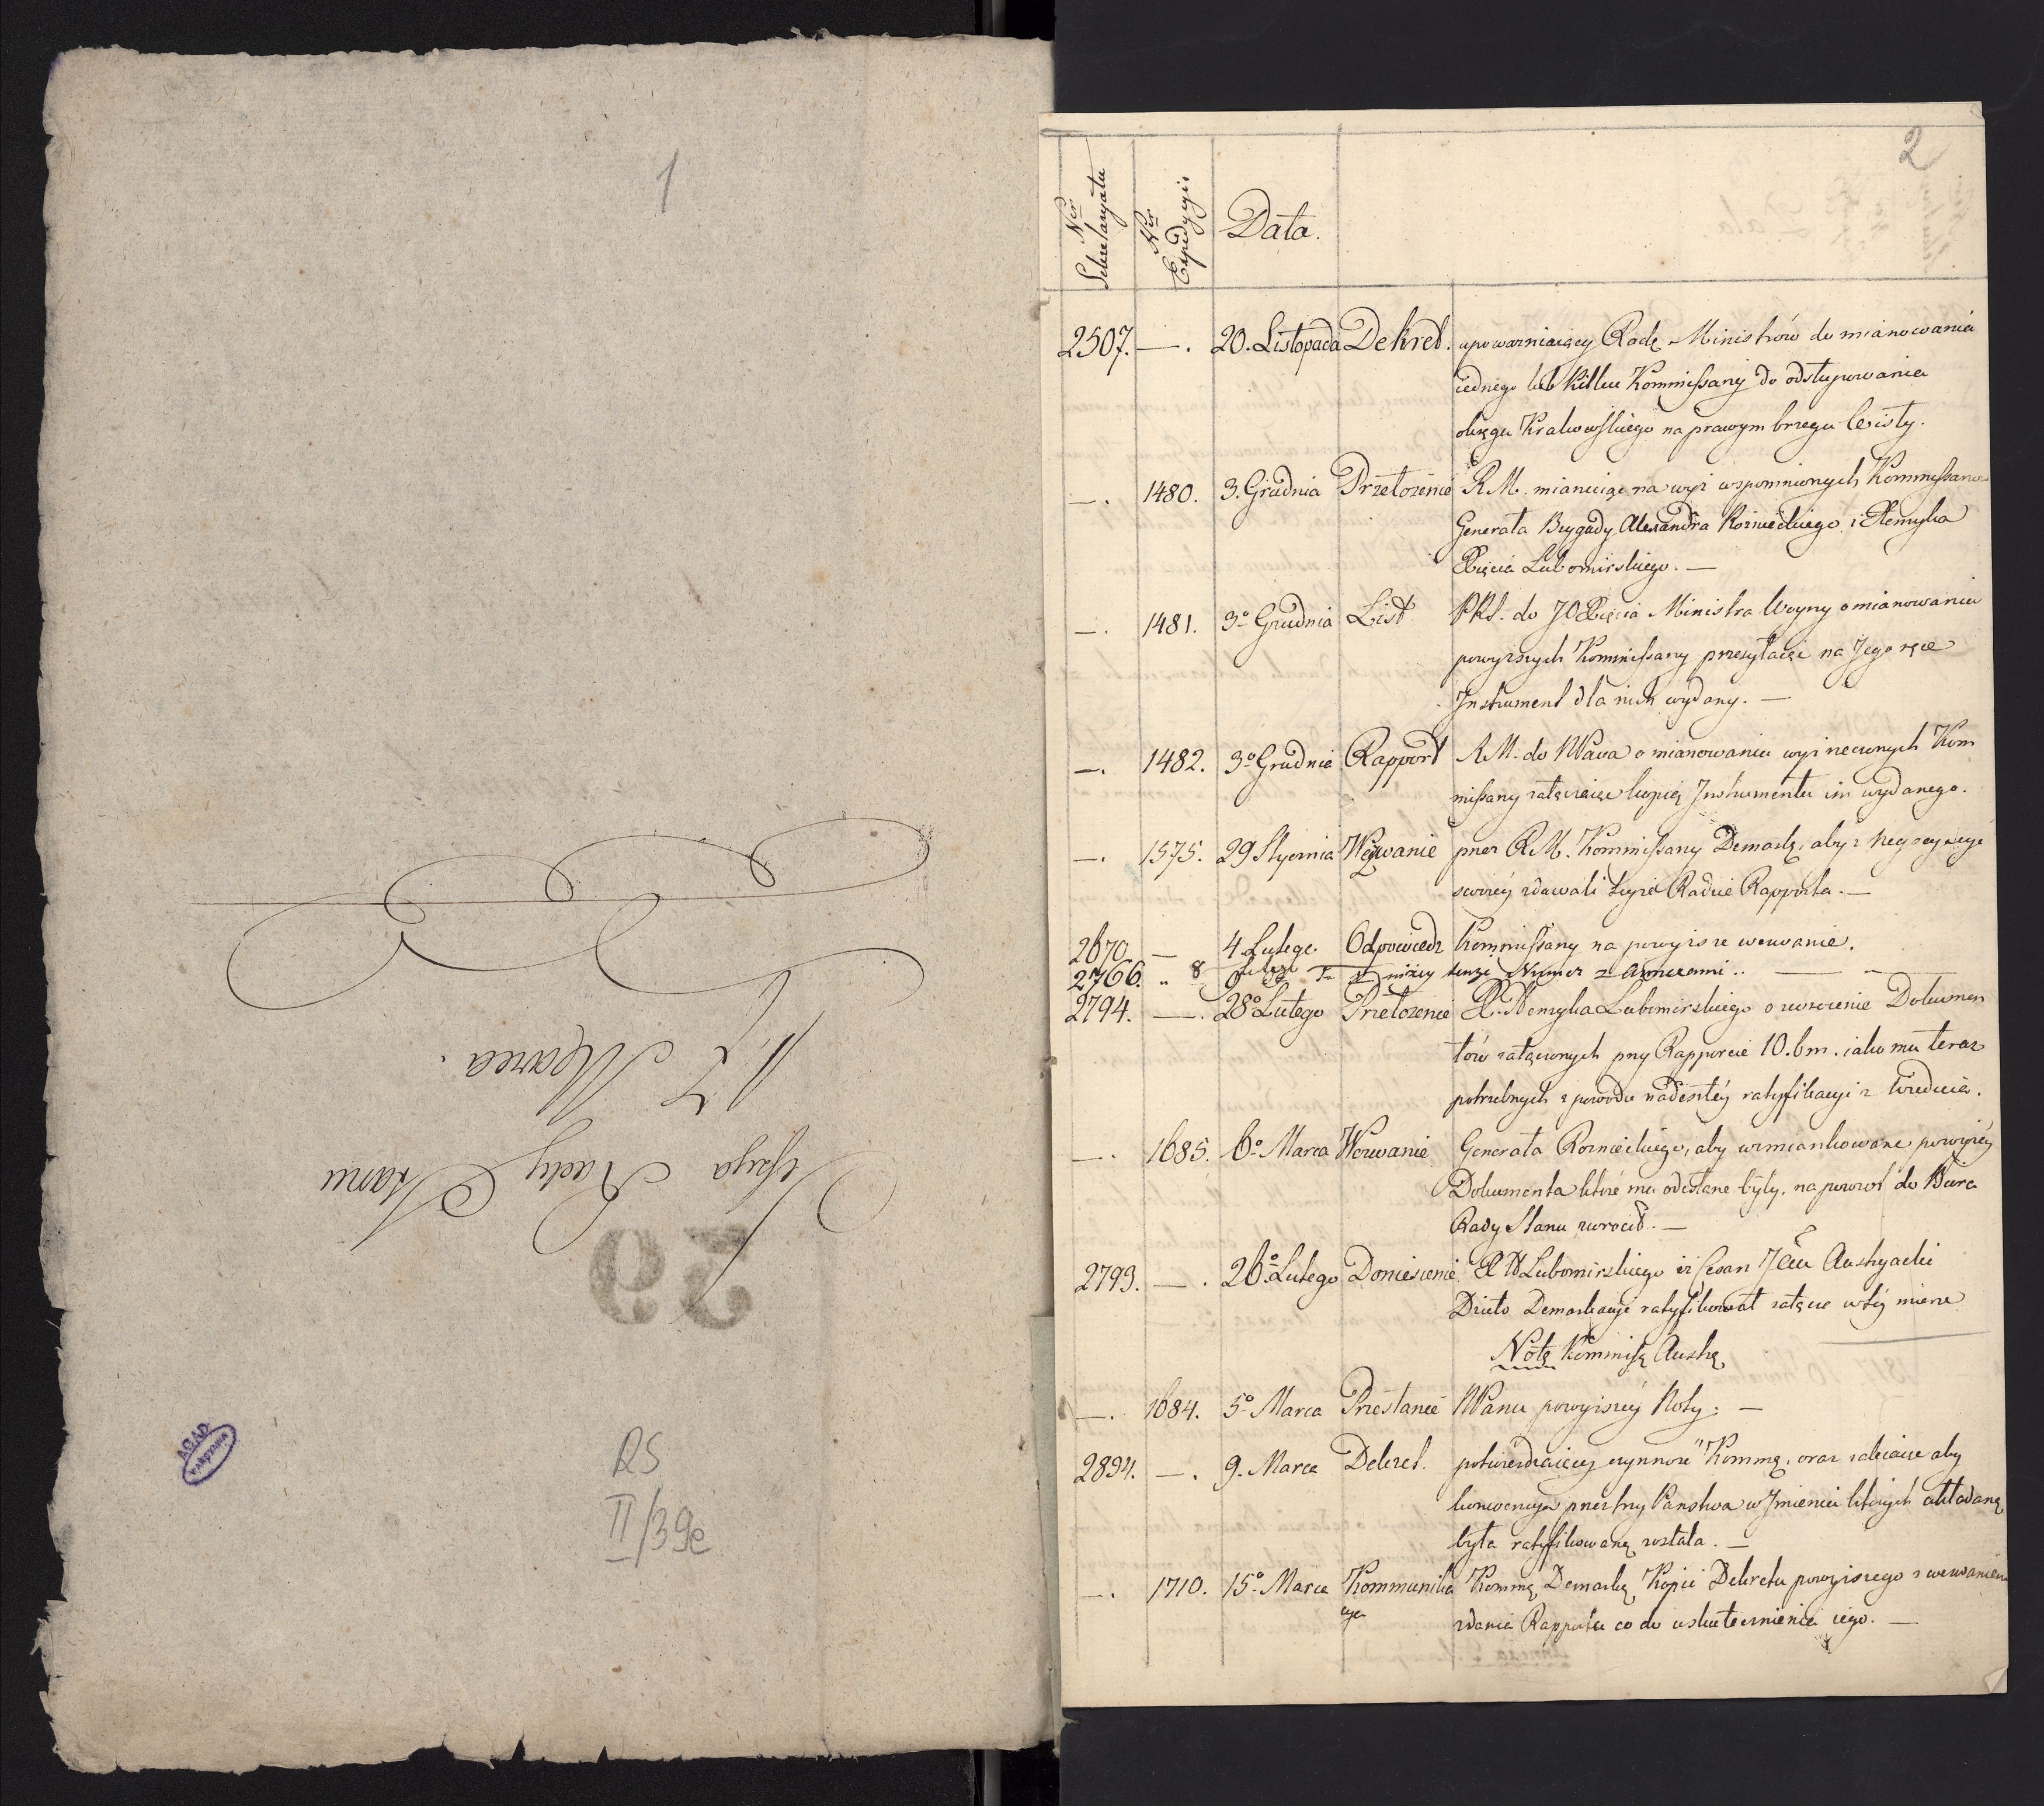 1
Sessya Rady Stanu
d. 7 Marca.
39
RS
II/39e
AGAD
WARSZAWA
2
Ner Sekretaryatu
Ner Expedycyi
Data.
2507. —. 20. Listopada Dekret. upoważniaiący Radę Ministrów do mianowania
iednego lub kilku Kommissarzy do odstępowania
okręgu Krakowskiego na prawym brzegu Wisły.
—. 1480. 3. Grudnia Przełożenie RM. mianuiąc na wyż wspomnionych Kommissarzów
Generała Brygady Alexandra Rożnieckiego i Henryka
Xięcia Lubomirskiego. —
—. 1481. 3o Grudnia List PRS. do JOXięcia Ministra Woyny o mianowaniu
powyższych Kommissarzy przesyłaiąc na Jego ręce
Instrument dla nich wydany. —
—. 1482. 3o Grudnia Rapport RM. do NPana o mianowaniu wyż rzeczonych Kom
missarzy załączaiąc kopię Instrumentu im wydanego.
—. 1575. 29 Stycznia Wezwanie przez RM. Kommissarzy Demarkę, aby z negocyacyi
swoiéy zdawali teyże Radzie Rapporta. —
2670. — 4. Lutego. Odpowiedz Kommissarzy na powyższe wezwanie.
2766. „ 8 Lutego niżéy tenże Numer z annexami ..
2794. —. 28o Lutego Przełożenie X. Henryka Lubomirskiego o zwrocenie Dokumen
tów załączonych przy Rapporcie 10. b m. iako mu teraz
potrzebnych z powodu nadeszłéy ratyfikacyi z Wiednia.
—. 1685. 6o Marca Wezwanie Generała Rożnieckiego, aby wzmiankowane powyżéy
Dokumenta które mu odesłane były, na powrót do Biura
Rady Stanu zwrócił. —
2793. —. 26o Lutego Doniesienie X H Lubomirskiego iż Cesarz JMć Austryacki
Dzieło Demarkacyi ratyfikował załącza w téy mierze
Notę Kommissę Austrę
—. 1684. 5o Marca Przesłanie NPanu powyższéy Noty. —
2894. —. 9. Marca Dekret. potwierdzaiący czynność Kommę, oraz zalecaiące aby
konwencya przez trzy Państwa w Imieniu których układaną
była ratyfikowaną została. —
—. 1710. 15o Marca Kommunika
cya Kommę Demarkę Kopii Dekretu powyższego z wezwaniem
zdania Rapportu co do uskutecznienia iego. —